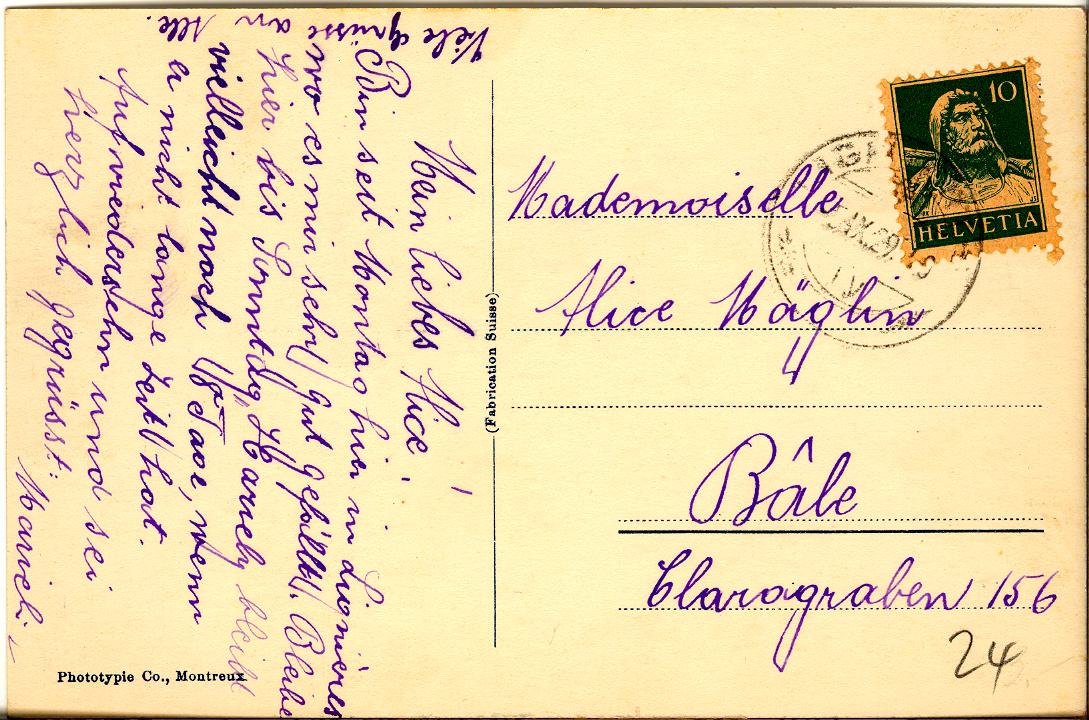 Mein liebes Alice!
Bin seit Montag hier in Lignières
wo es mir sehr gut gefällt. Bleibe
hier bis Sonntag, Hansely bleibt
vielleicht noch 8 Tage, wenn
er nicht lange Zeit hat.
Auf wiedersehn und sei
herzlich gegrüsst:
Marieli
Viele Grüsse an
alle.
(Fabrication Suisse)
Phototypie Co., Montreux
Mademoiselle
Alice Mäglin
Bâle
Claragraben 156
24
10
HELVETIA
IX.29